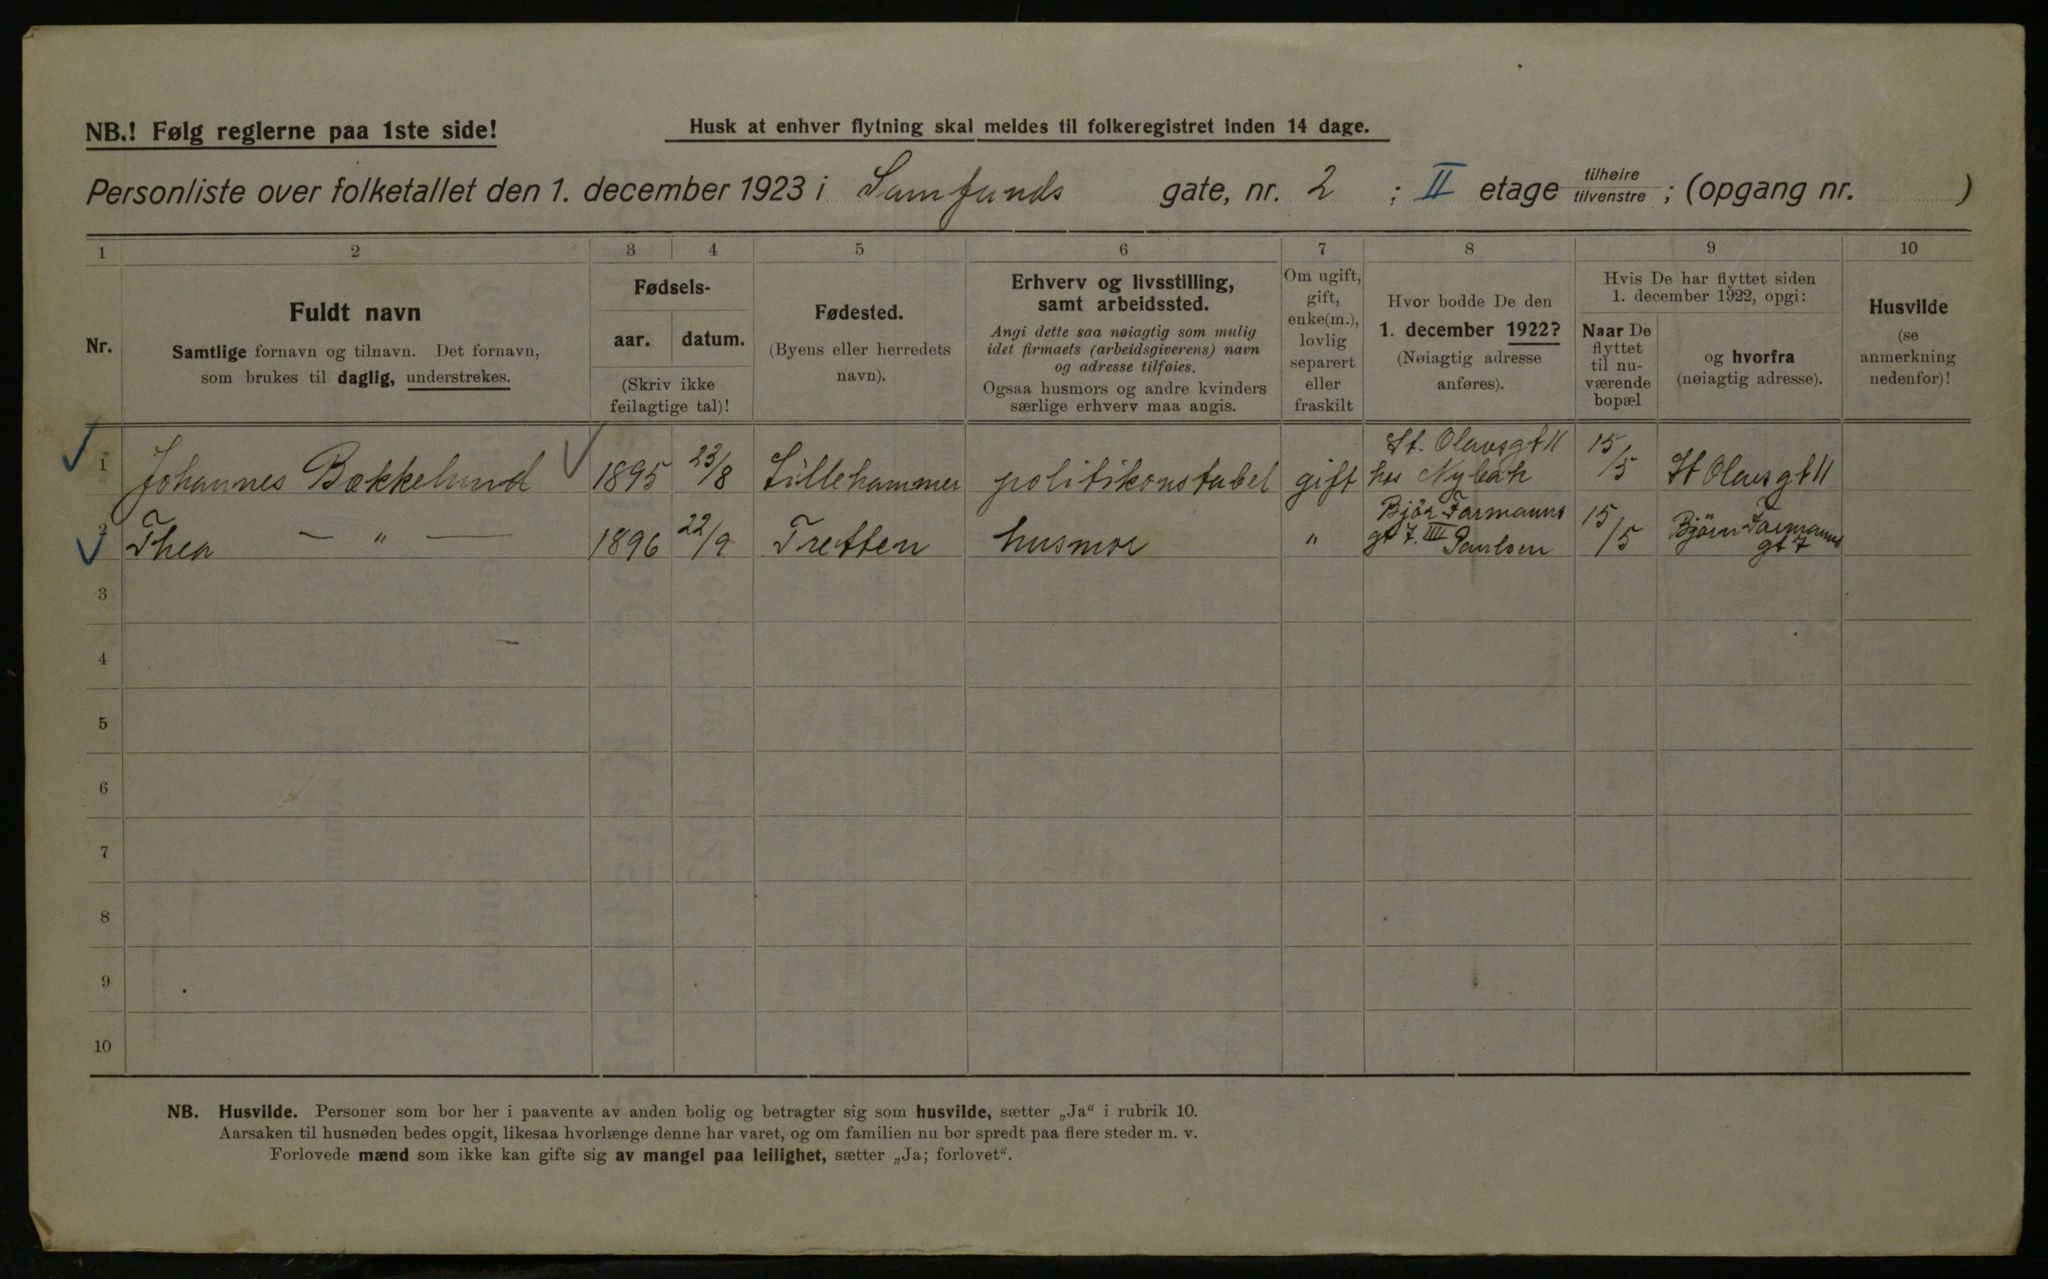 NB.! Følg reglerne paa 1ste side!
Husk at enhver flytning skal meldes til folkeregistret inden 14 dage.
Personliste over folketallet den 1. december 1923 i Samfunds gate, nr. 2 ; II etage tilhøire tilvenstre ; (opgang nr. )
1 2 3 4 5 6 7 8 9 10
Nr.
Fuldt navn
Samtlige fornavn og tilnavn. Det fornavn,
som brukes til daglig, understrekes.
Fødsels-
aar. datum.
(Skriv ikke
feilagtige tal)!
Fødested.
(Byens eller herredets
navn).
Erhverv og livsstilling,
samt arbeidssted.
Angi dette saa nøiagtig som mulig
idet firmaets (arbeidsgiverens) navn
og adresse tilføies.
Ogsaa husmors og andre kvinders
særlige erhverv maa angis.
Om ugift,
gift,
enke(m.),
lovlig
separert
eller
fraskilt
Hvor bodde De den
1. december 1922?
(Nøiagtig adresse
anføres).
Hvis De har flyttet siden
1. december 1922, opgi:
Naar De
flyttet
til nu-
værende
bopæl
og hvorfra
(nøiagtig adresse).
Husvilde
(se
anmerkning
nedenfor)!
1 Johannes Bækkelund 1895 23/8 Lillehammer politikonstabel gift St. Olavsgt 11 hos Nybak 15/5 St Olavsgt 11
2 Thea — " — 1896 22/9 Tretten husmor " Björ Farmanns gt 7. IIII Paulsen 15/5 Bjørn Farmanns gt 7
3
4
5
6
7
8
9
10
NB. Husvilde. Personer som bor her i paavente av anden bolig og betragter sig som husvilde, sætter „Ja“ i rubrik 10.
Aarsaken til husnøden bedes opgit, likesaa hvorlænge denne har varet, og om familien nu bor spredt paa flere steder m. v.
Forlovede mænd som ikke kan gifte sig av mangel paa leilighet, sætter „Ja; forlovet“.